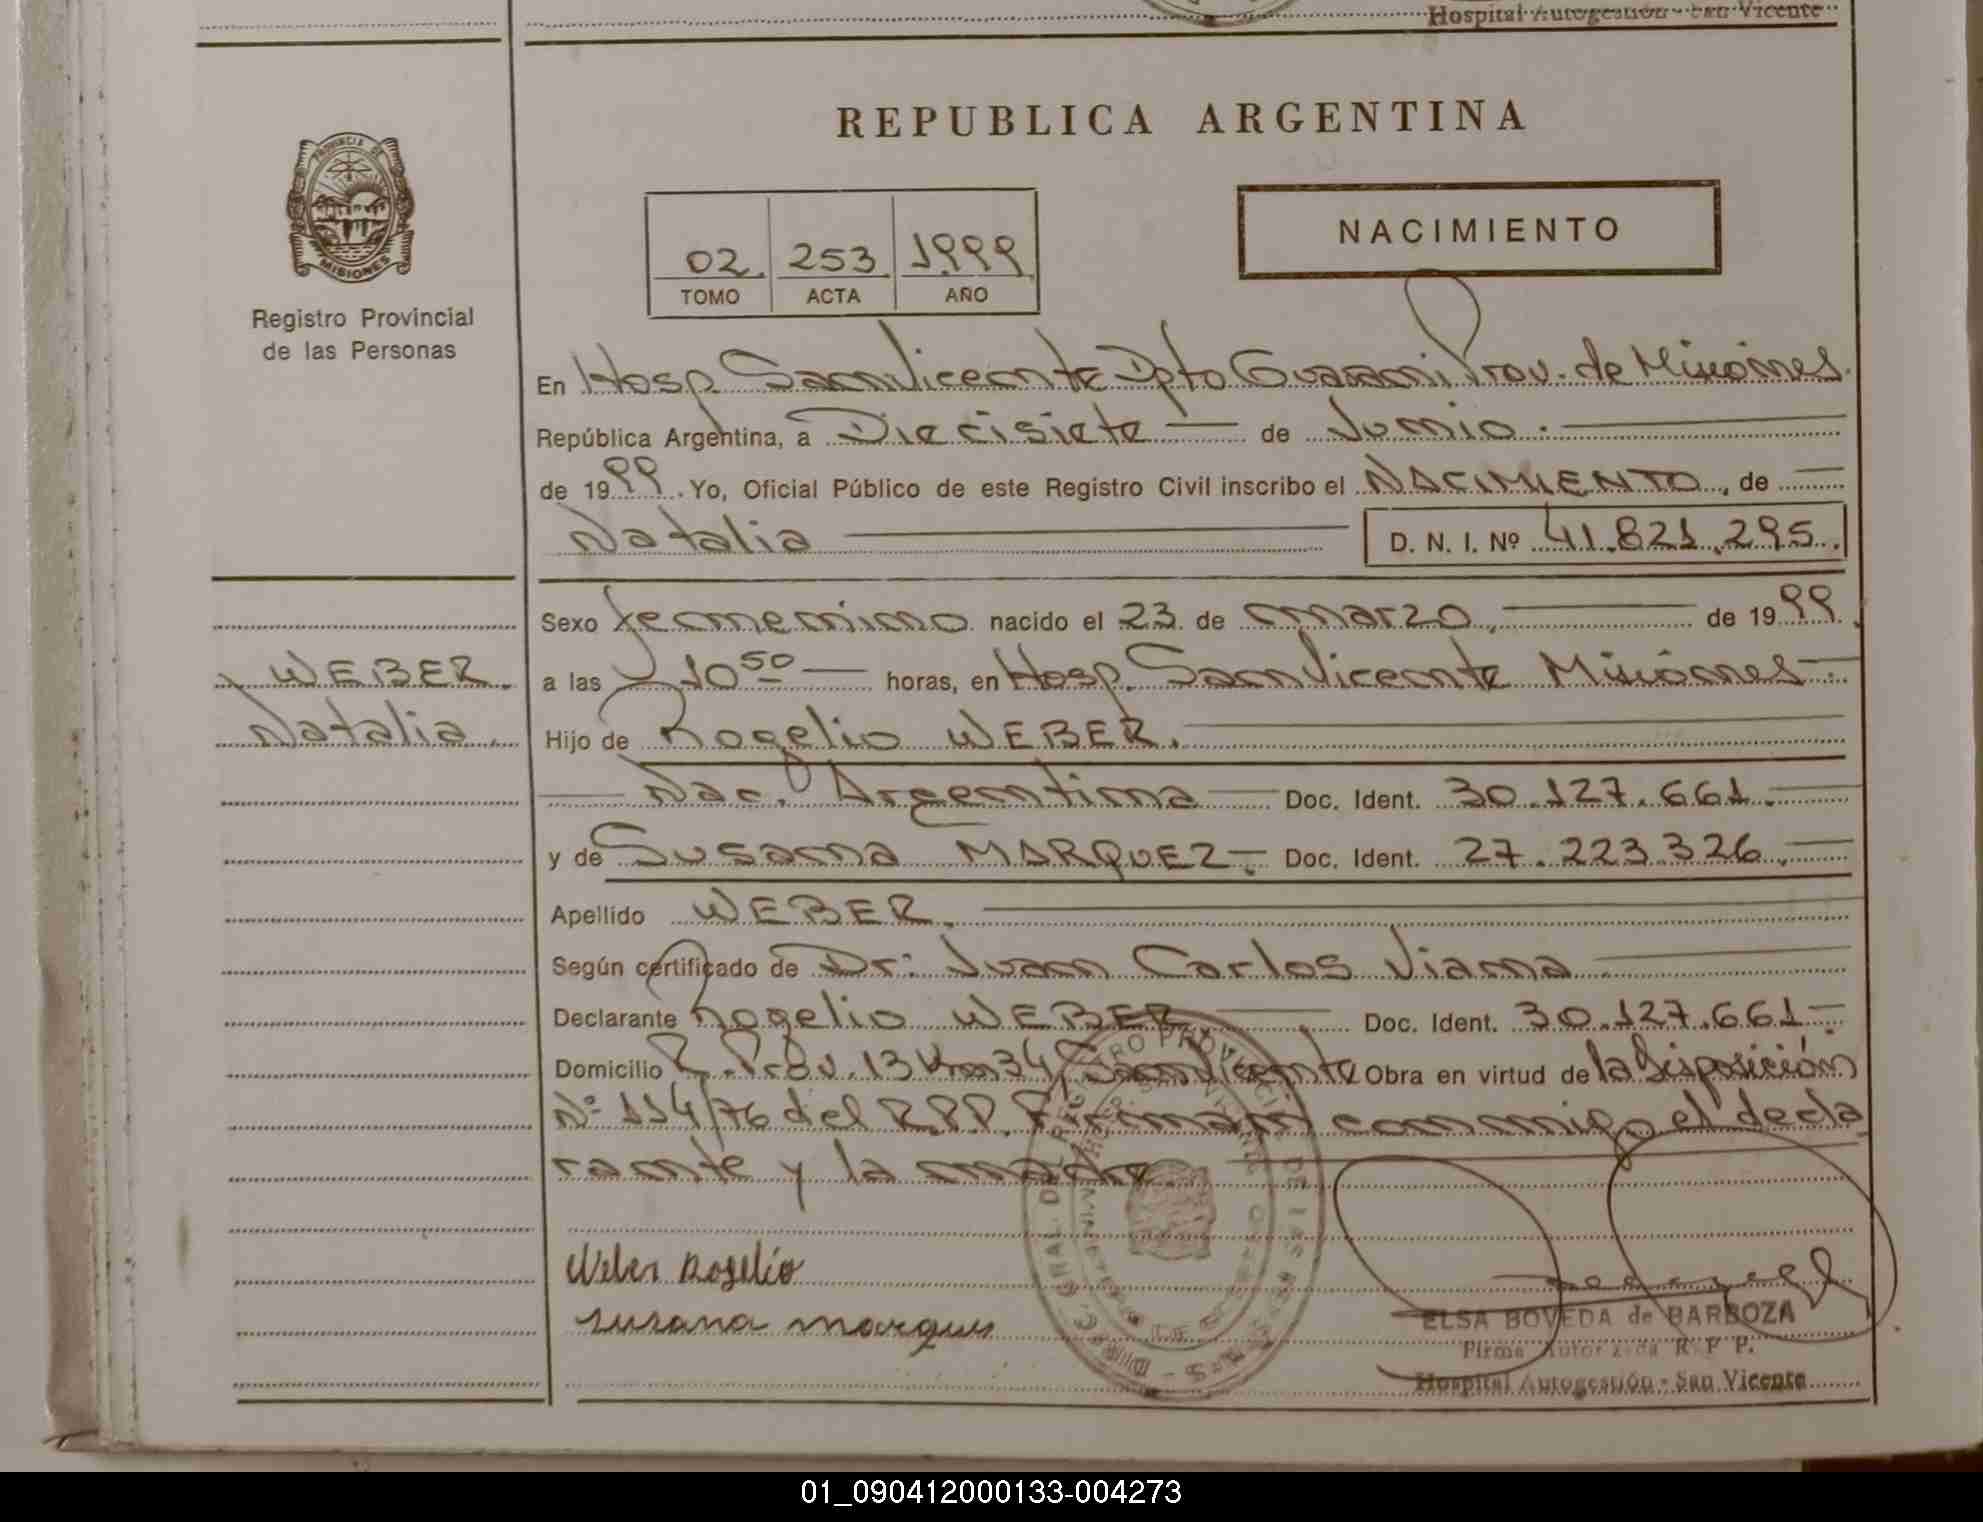 Hospital Autogestión - San Vicente
REPUBLICA ARGENTINA
PROVINCIA DE
MISIONES
Registro Provincial
de las Personas
02 253 1999
TOMO ACTA AÑO
NACIMIENTO
En Hosp. San Vicente Dpto Guarani Prov. de Misiones.
República Argentina, a Diecisiete de Junio.
de 1999. Yo, Oficial Público de este Registro Civil inscribo el NACIMIENTO, de
Natalia D. N. I. Nº 41.821.295.
Sexo femenino nacido el 23 de marzo, de 1999.
WEBER.
Natalia.
a las 10 50 horas, en Hosp. San Vicente Misiones
Hijo de Rogelio WEBER.
Nac. Argentina Doc. Ident. 30.127.661.
y de Susana MARQUEZ. Doc. Ident. 27.223.326.
Apellido WEBER.
Según certificado de Dr: Juan Carlos Viana
Declarante Rogelio WEBER. Doc. Ident. 30.127.661
Domicilio R. Prov. 13 Km 34 San Vicente Obra en virtud de la Disposición
Nº 114/76 del R.P.P. Firman conmigo el decla
rante y la madre
Weber Rogelio
susana marques
ELSA BOVEDA de BARBOZA
Firma Autorizada R. P. P.
Hospital Autogestión - San Vicente
01_090412000133-004273